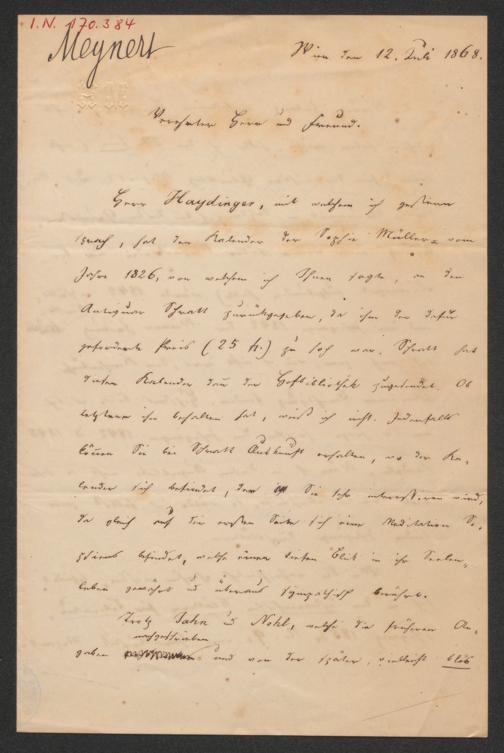 I.N. 170.384
Meynert
Wien den 12. Juli 1868.
Verehrter Herr und Freund.
Herr Haydinger, mit welchem ich gestern
sprach, hat den Kalender der Sophie Müller vom
Jahre 1826, von welchem ich Ihnen sagte, an den
Antiquar Schratt zurückgegeben, da ihm der dafür
geforderte Preis (25 fl.) zu hoch war. Schratt hat
diesen Kalender dann der Hofbibliothek zugesendet. Ob
letztere ihn behalten hat, weiß ich nicht. Jedenfalls
können Sie bei Schratt Auskunft erhalten, wo der Ka-
lender sich befindet, der Sie sehr interessieren wird,
da gleich auf der ersten Seite sich eine Meditation So-
phiens befindet, welche einen tiefen Blick in ihr Seelen-
leben gewährt u überaus sympathisch berührt.
Trotz Jahn u Nohl, welche die früheren An-
nachgeschrieben
gaben und von der später, vielleicht bloß